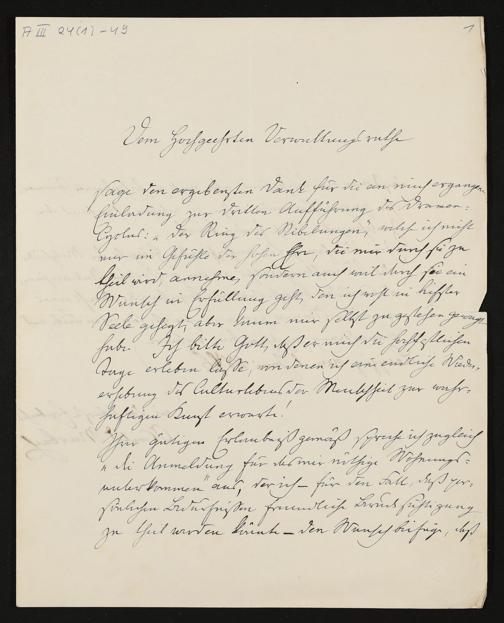 A III 24(1) - 49
1
Dem Hochgeehrten Verwaltungsrathe
sage den ergebensten Dank für die an mich ergangene
Einladung zur dritten Aufführung des Dramen-
Cyclus: „Der Ring des Nibelungen", welch ich nicht
nur im Gefühle der hohen Ehre, die mir durch sie zu
theil wird, annehme, sondern auch weil durch sie ein
Wunsch in Erfüllung geht, den ich wohl in tiefster
Seele gehegt, aber kaum mir selbst zu gestehen gewagt
habe. Ich bitte Gott, daß er mich die hochfestlichen
Tage erleben lasse, von denen ich eine endliche Wieder-
erhebung des Culturlebens der Menschheit zur wahr-
haftigen Kunst erwarte.
Ihrer gütigen Erlaubniß gemäß spreche ich zugleich
„die Anmeldung für das mir nöthige Wohnungs-
unterkommen" aus, der ich – für den Fall, daß per-
sönlichen Bedürfnissen freundliche Berücksichtigung
zu theil werden könnte – den Wunsch beifüge, daß